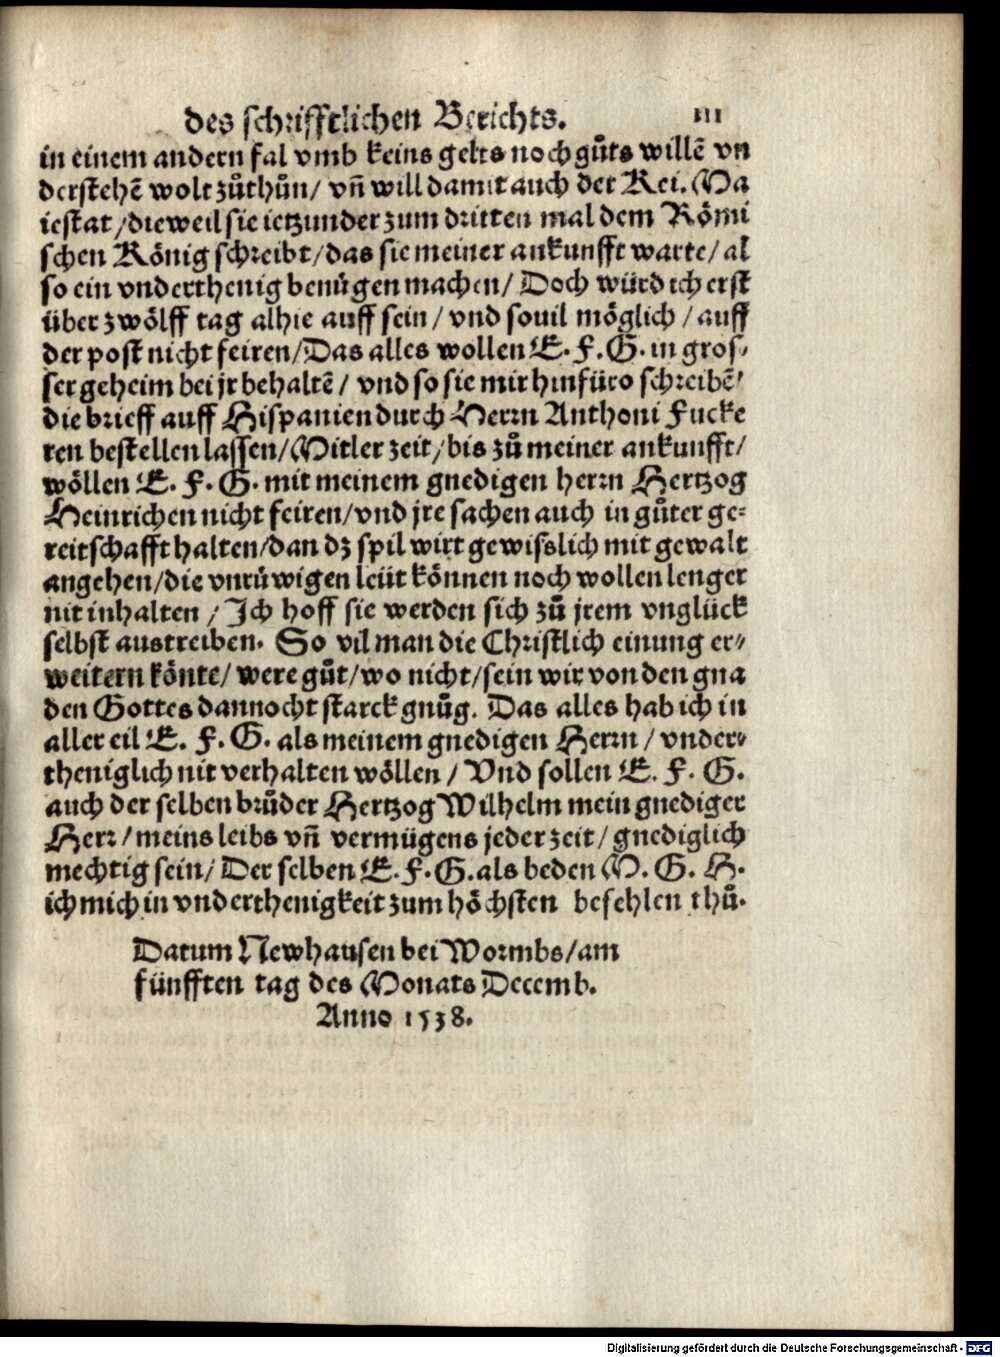 des schrifftlichen Berichts. III
in einem andern fal vmb keins gelts noch gůts willē vn
derstehē wolt zůthůn/ vñ will damit auch der Kei. Ma
iestat /dieweil sie ietzunder zum dritten mal dem Römi
schen König schreibt/das sie meiner ankunfft warte/ al
so ein vnderthenig benügen machen/ Doch würd ich erst
über zwölff tag alhie auff sein/ vnd souil möglich / auff
der post nicht feiren/Das alles wollen E. F. G. in gros-
ser geheim bei jr behaltē/ vnd so sie mir hinfüro schreibē/
die brieff auff Hispanien durch Herrn Anthoni Fucke
ren bestellen lassen/Mitler zeit/bis zů meiner ankunfft/
wöllen E. F. G. mit meinem gnedigen herrn Hertzog
Heinrichen nicht feiren/vnd jre sachen auch in gůter ge-
reitschafft halten/dan dz spil wirt gewisslich mit gewalt
angehen/die vnrüwigen leüt können noch wollen lenger
nit inhalten / Ich hoff sie werden sich zů jrem vnglück
selbst austreiben. So vil man die Christlich einung er-
weitern könte/ were gůt/wo nicht/sein wir von den gna
den Gottes dannocht starck gnůg. Das alles hab ich in
aller eil E. F. G. als meinem gnedigen Herrn / vnder-
theniglich nit verhalten wöllen / Vnd sollen E. F. G.
auch der selben brůder Hertzog Wilhelm mein gnediger
Herr/meins leibs vñ vermügens jeder zeit/ gnediglich
mechtig sein/ Der selben E. F. G. als beden M. G. H.
ich mich in vnderthenigkeit zum höchsten befehlen thů.
Datum Newhausen bei Wormbs/am
fünfften tag des Monats Decemb.
Anno 1538.
Digitalisierung gefördert durch die Deutsche Forschungsgemeinschaft - DFG